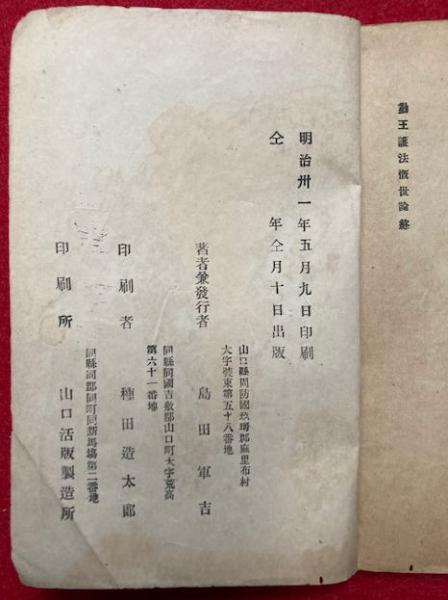 勤王護法慨世論終
明治卅一年五月九日印刷
仝　年仝月十日出版
山口縣周防國玖珂郡麻里布村
大字裝束第五十八番地
著者兼發行者　島田軍吉
同縣同國吉敷郡山口町大字荒高
第六十一番地
印刷者　種田造太郎
同縣同郡同町同新馬塲第二番地
印刷所　山口活版製造所